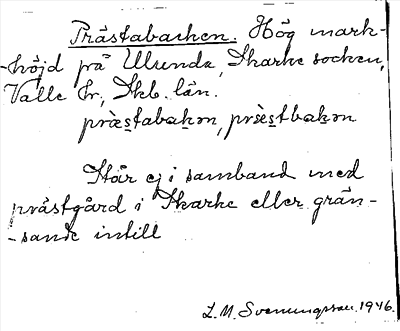 Prästabacken. Hög mark-
-höjd på Ulunda, Skarke socken,
Valle hr, Skb. län.
præ̀stabakən, præ̀stbakən
Står ej i samband med
prästgård i Skarke eller grän-
-sande intill
L. M. Svenungsson. 1946.